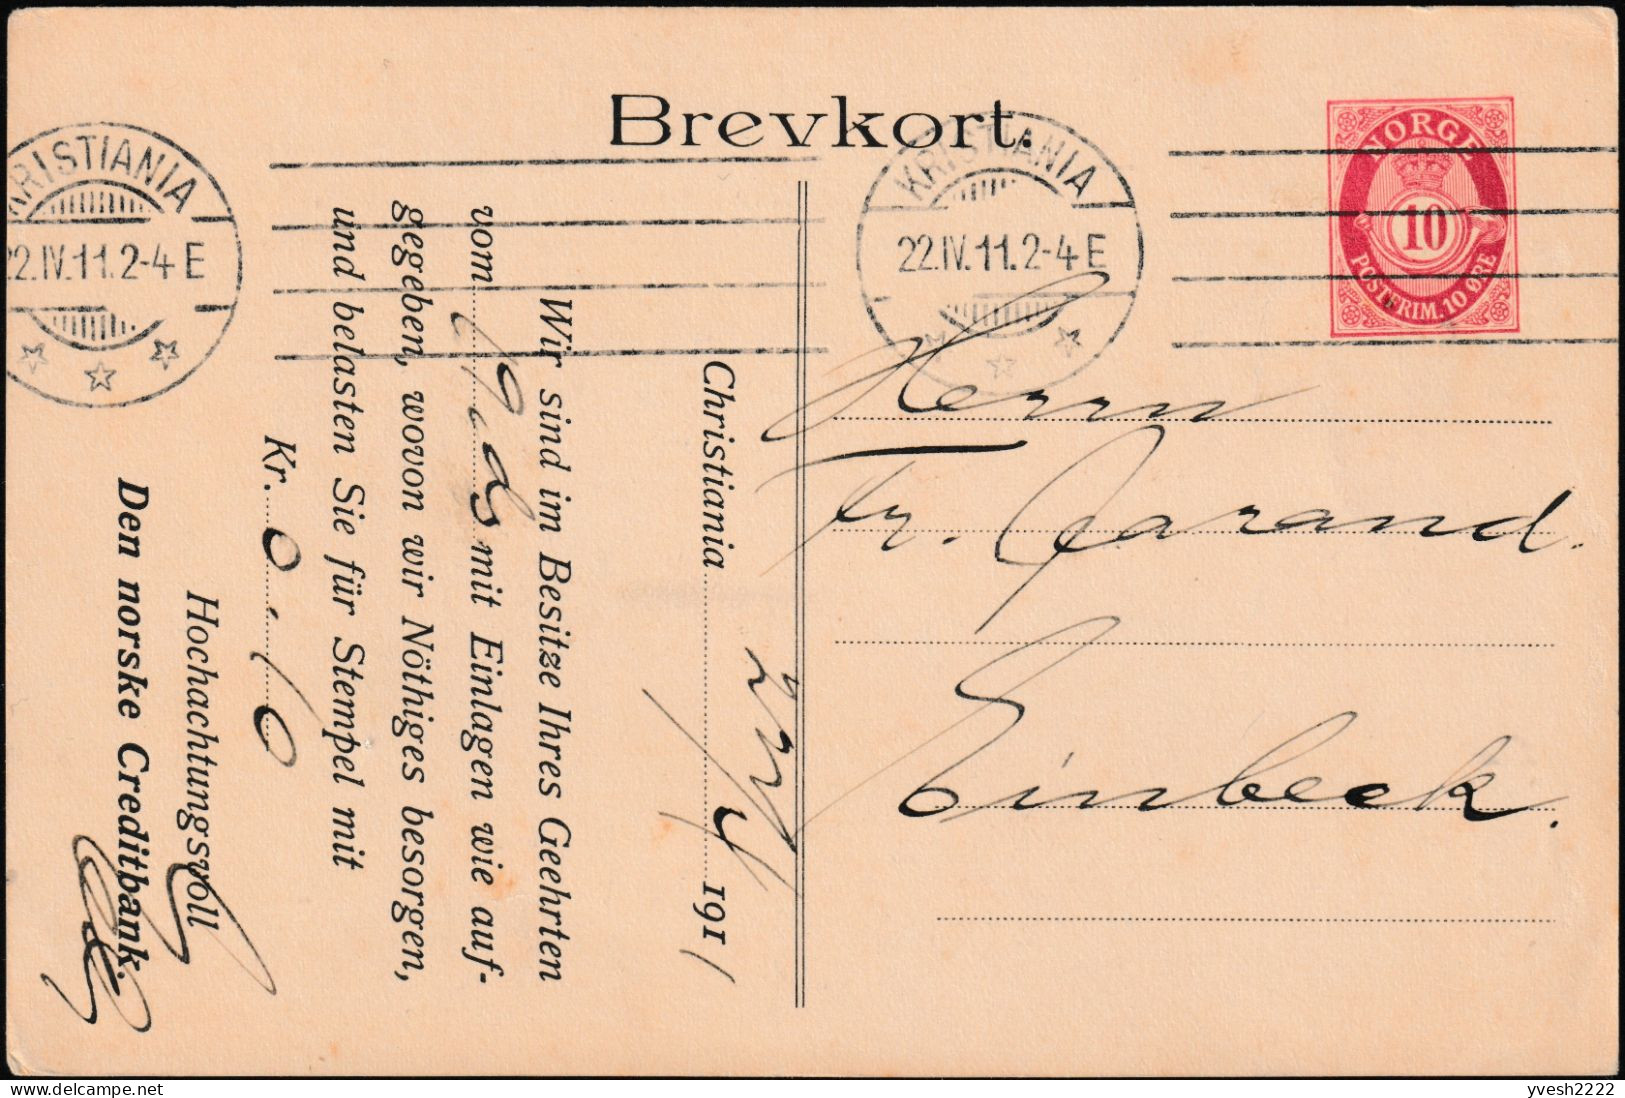 Brevkort.
KRISTIANIA
22.IV.11.2-4 E
KRISTIANIA
22.IV.11.2-4 E
NORGE
10
POSTFRIM. 10 ØRE
Christiania 22/4 1911
Wir sind im Besitze Ihres Geehrten
vom 19. ds mit Einlagen wie auf-
gegeben, wovon wir Nöthiges besorgen,
und belasten Sie für Stempel mit
Kr. 0.10
Hochachtungsvoll
Den norske Creditbank.
Herrn
Fr. Jarand.
Einbeck.
delcampe.net
yvesh2222